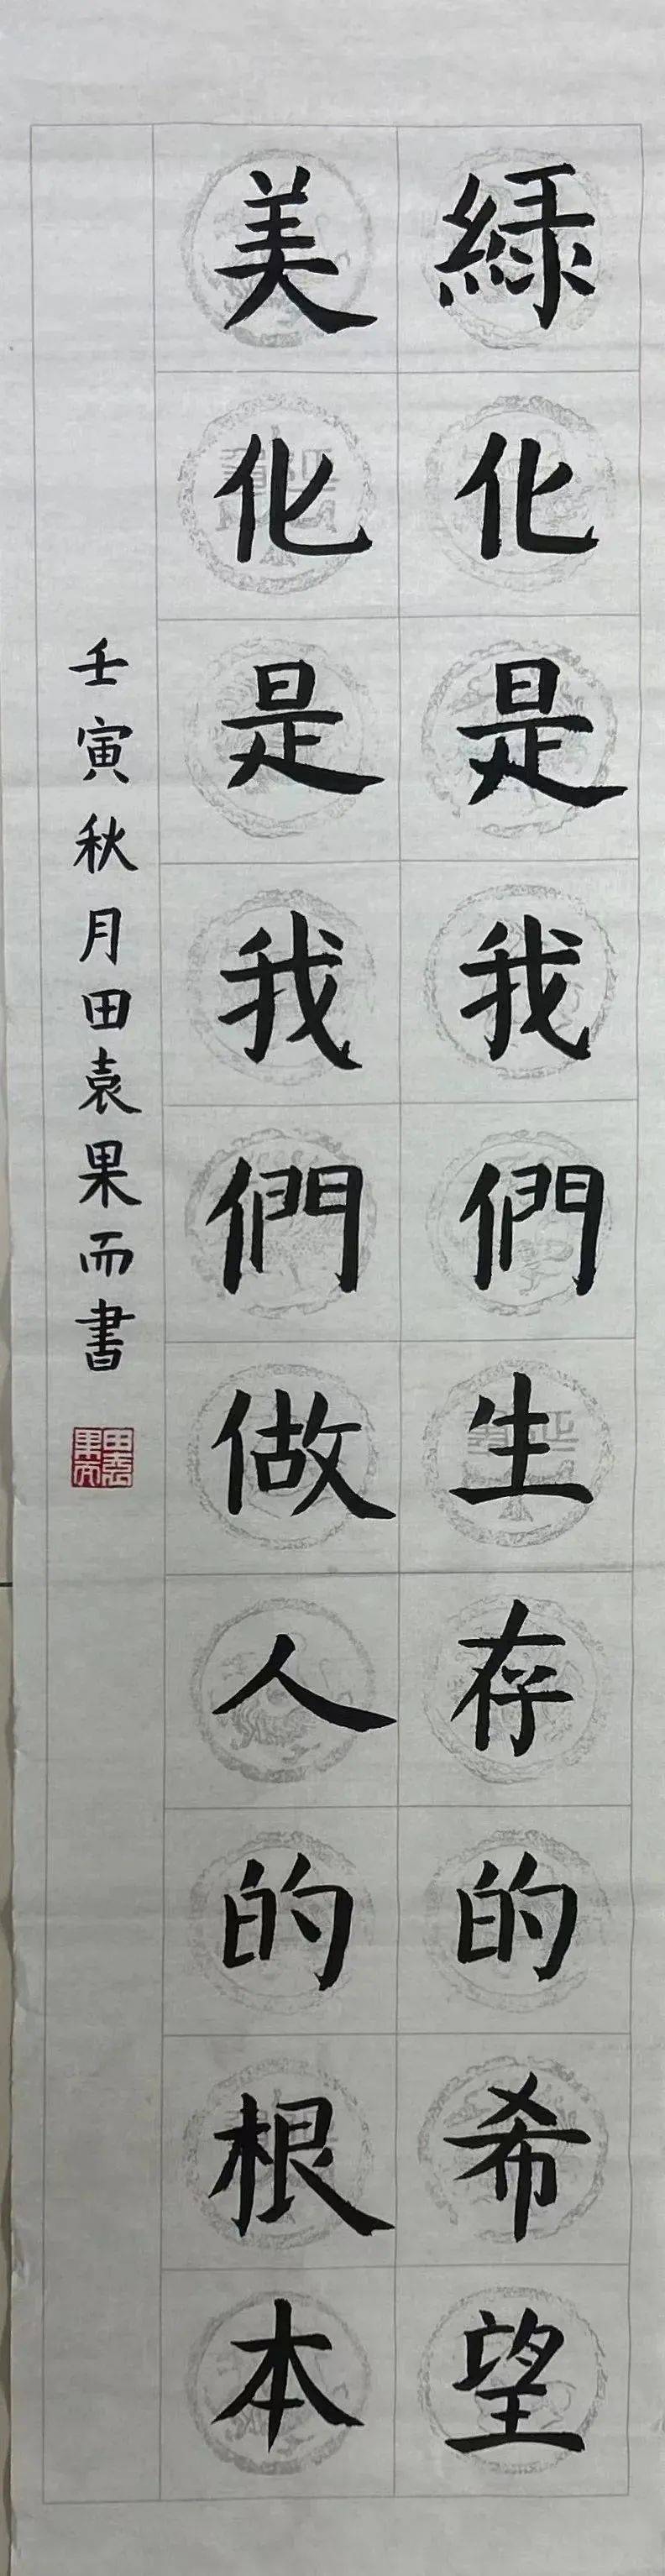 綠化是我們生存的希望
美化是我們做人的根本
壬寅秋月田袁果而書
田袁果而